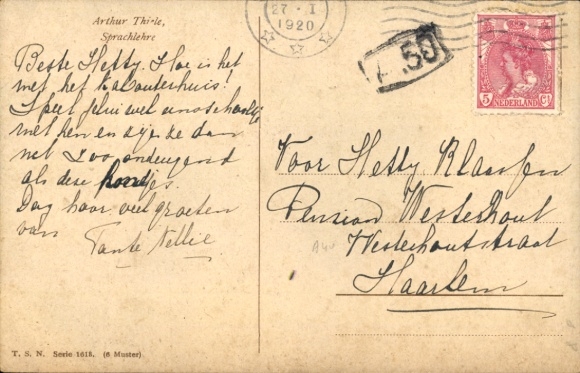 Arthur Thiele,
Sprachlehre
27 · I
1920
.50
5 NEDERLAND Ct
Beste Hetty. Hoe is het
met het kabouterhuis!
Speel jelui wel eens schooltje
met hen en zijn ze dan
net zoo ondeugend
als deze hondjes.
Dag hoor veel groeten
van Tante Nellie
Voor Hetty Klaassen
Pension Westerhout
Westerhoutstraat
Haarlem
T. S. N. Serie 1618. (6 Muster)